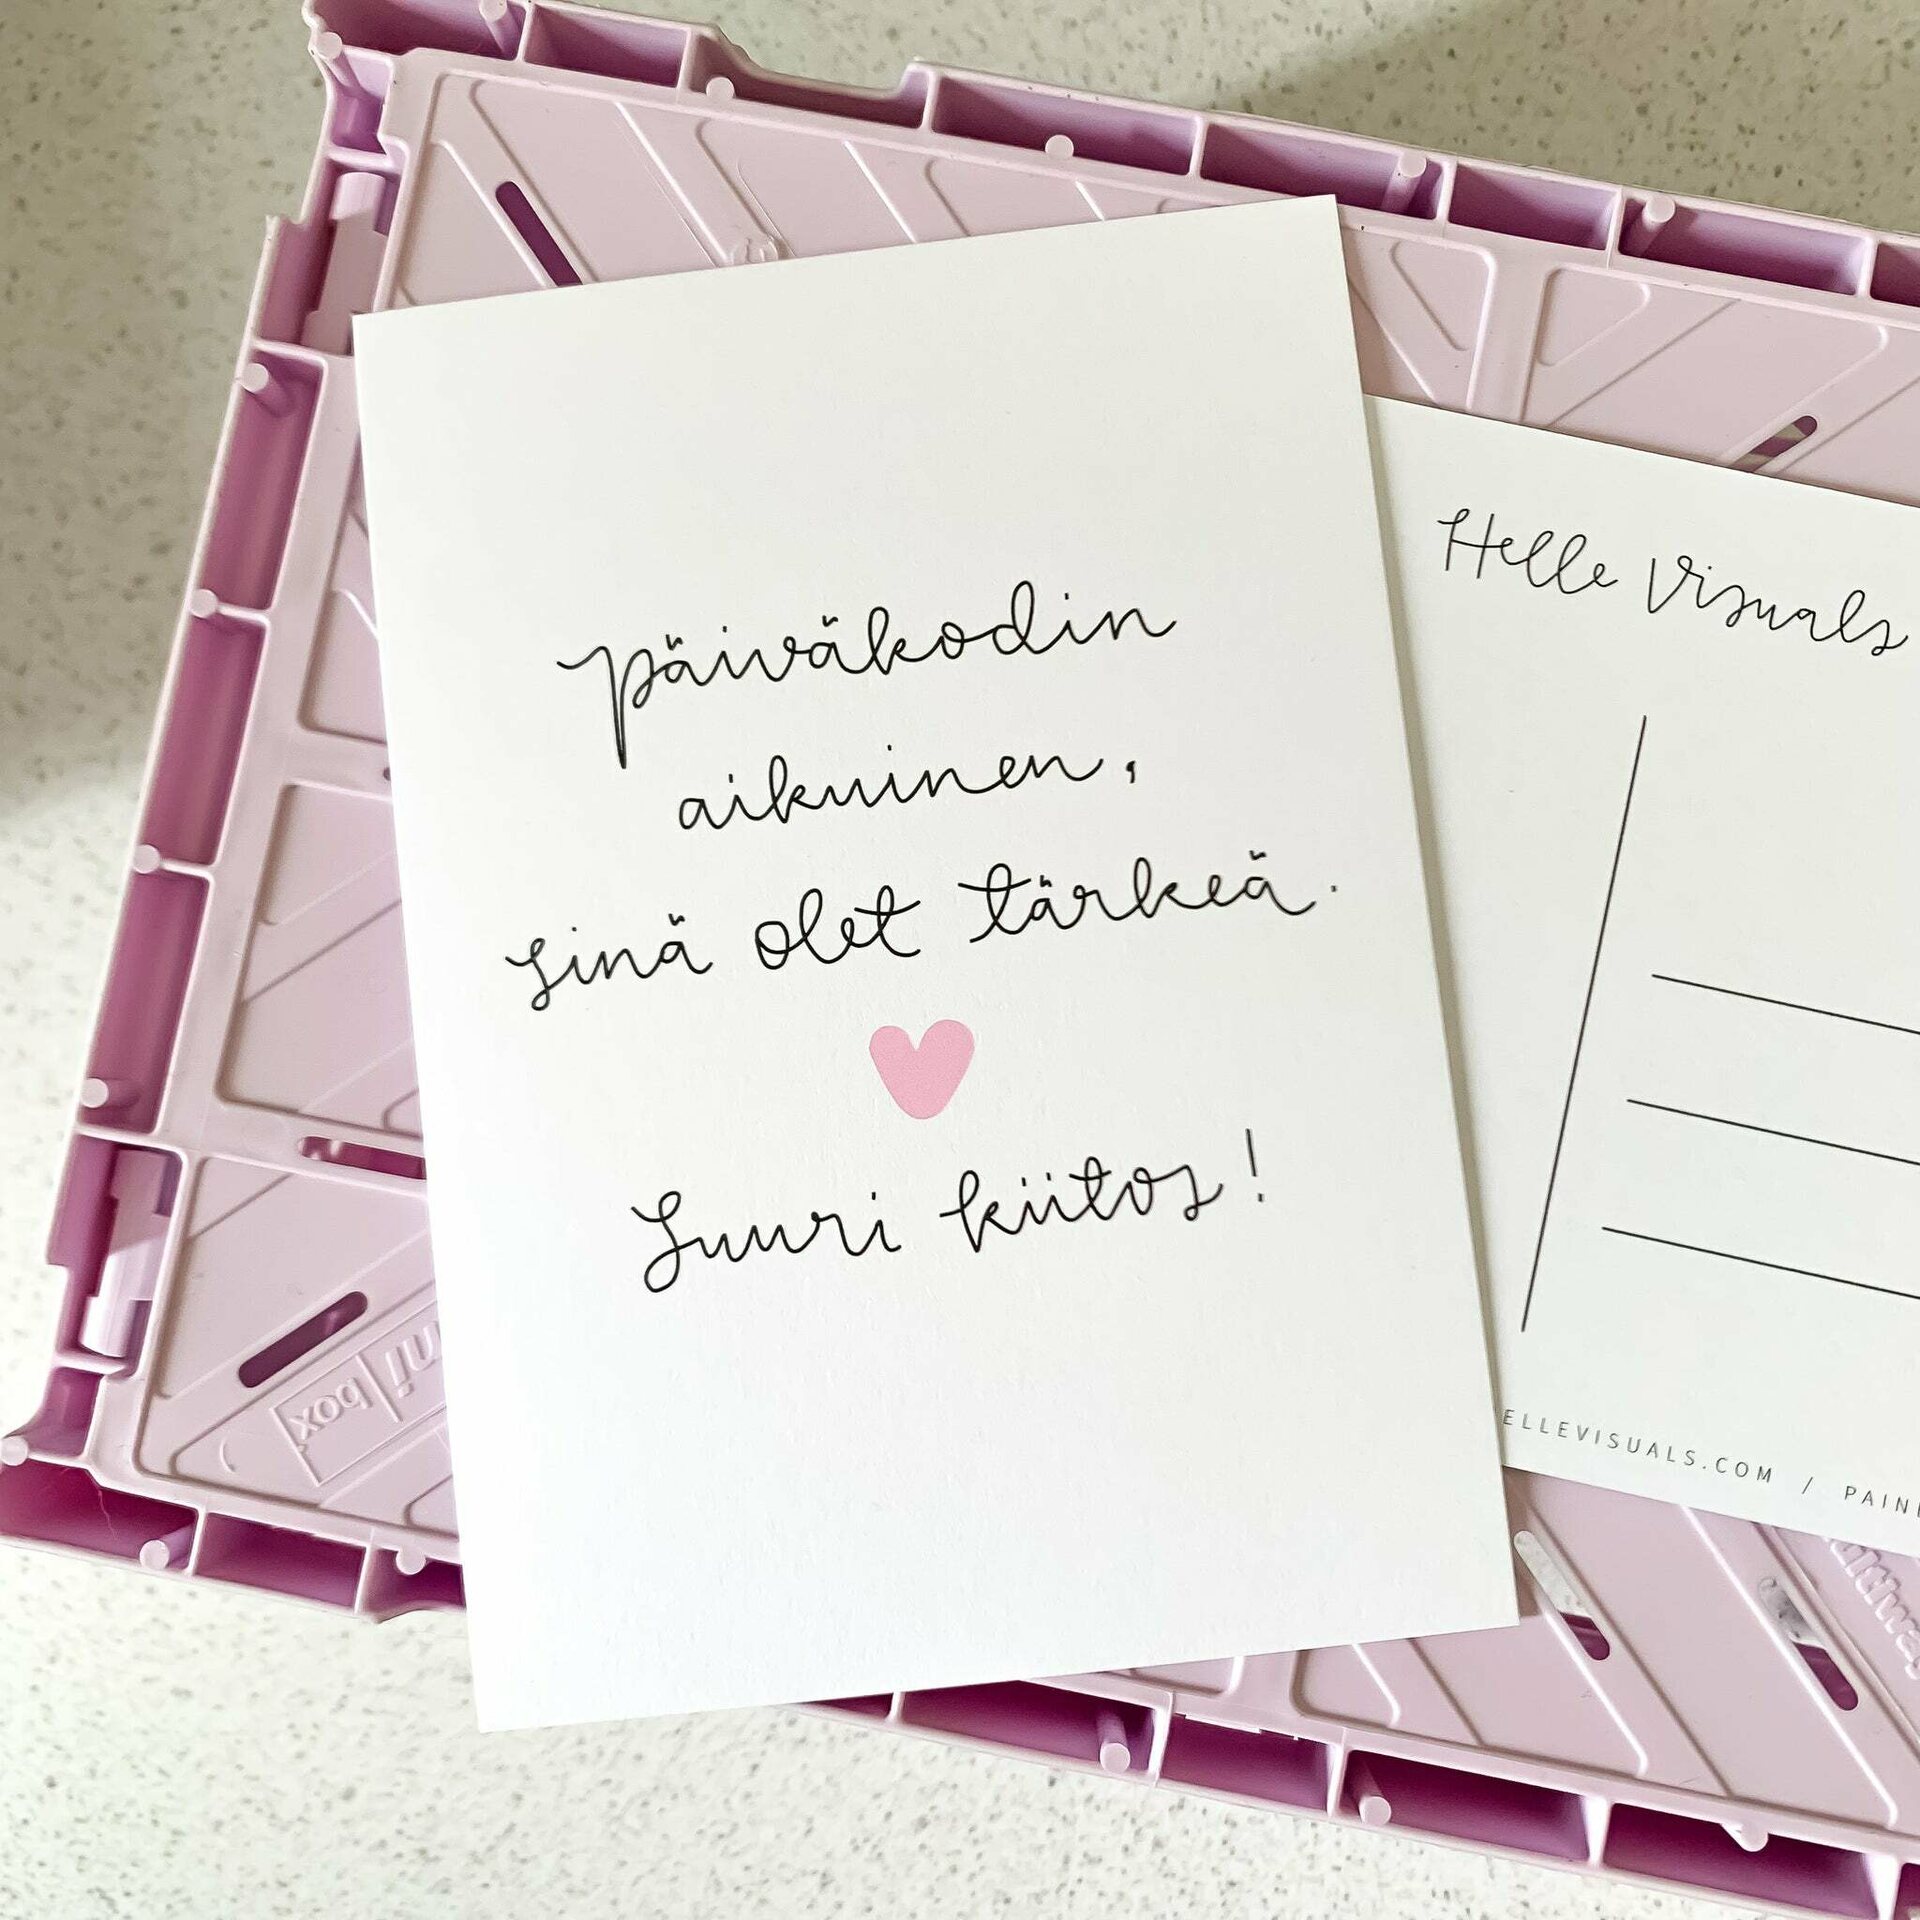 Päiväkodin
aikuinen,
sinä olet tärkeä.
Suuri kiitos!
Helle Visuals
ELLEVISUALS.COM / PAIN
ni
box